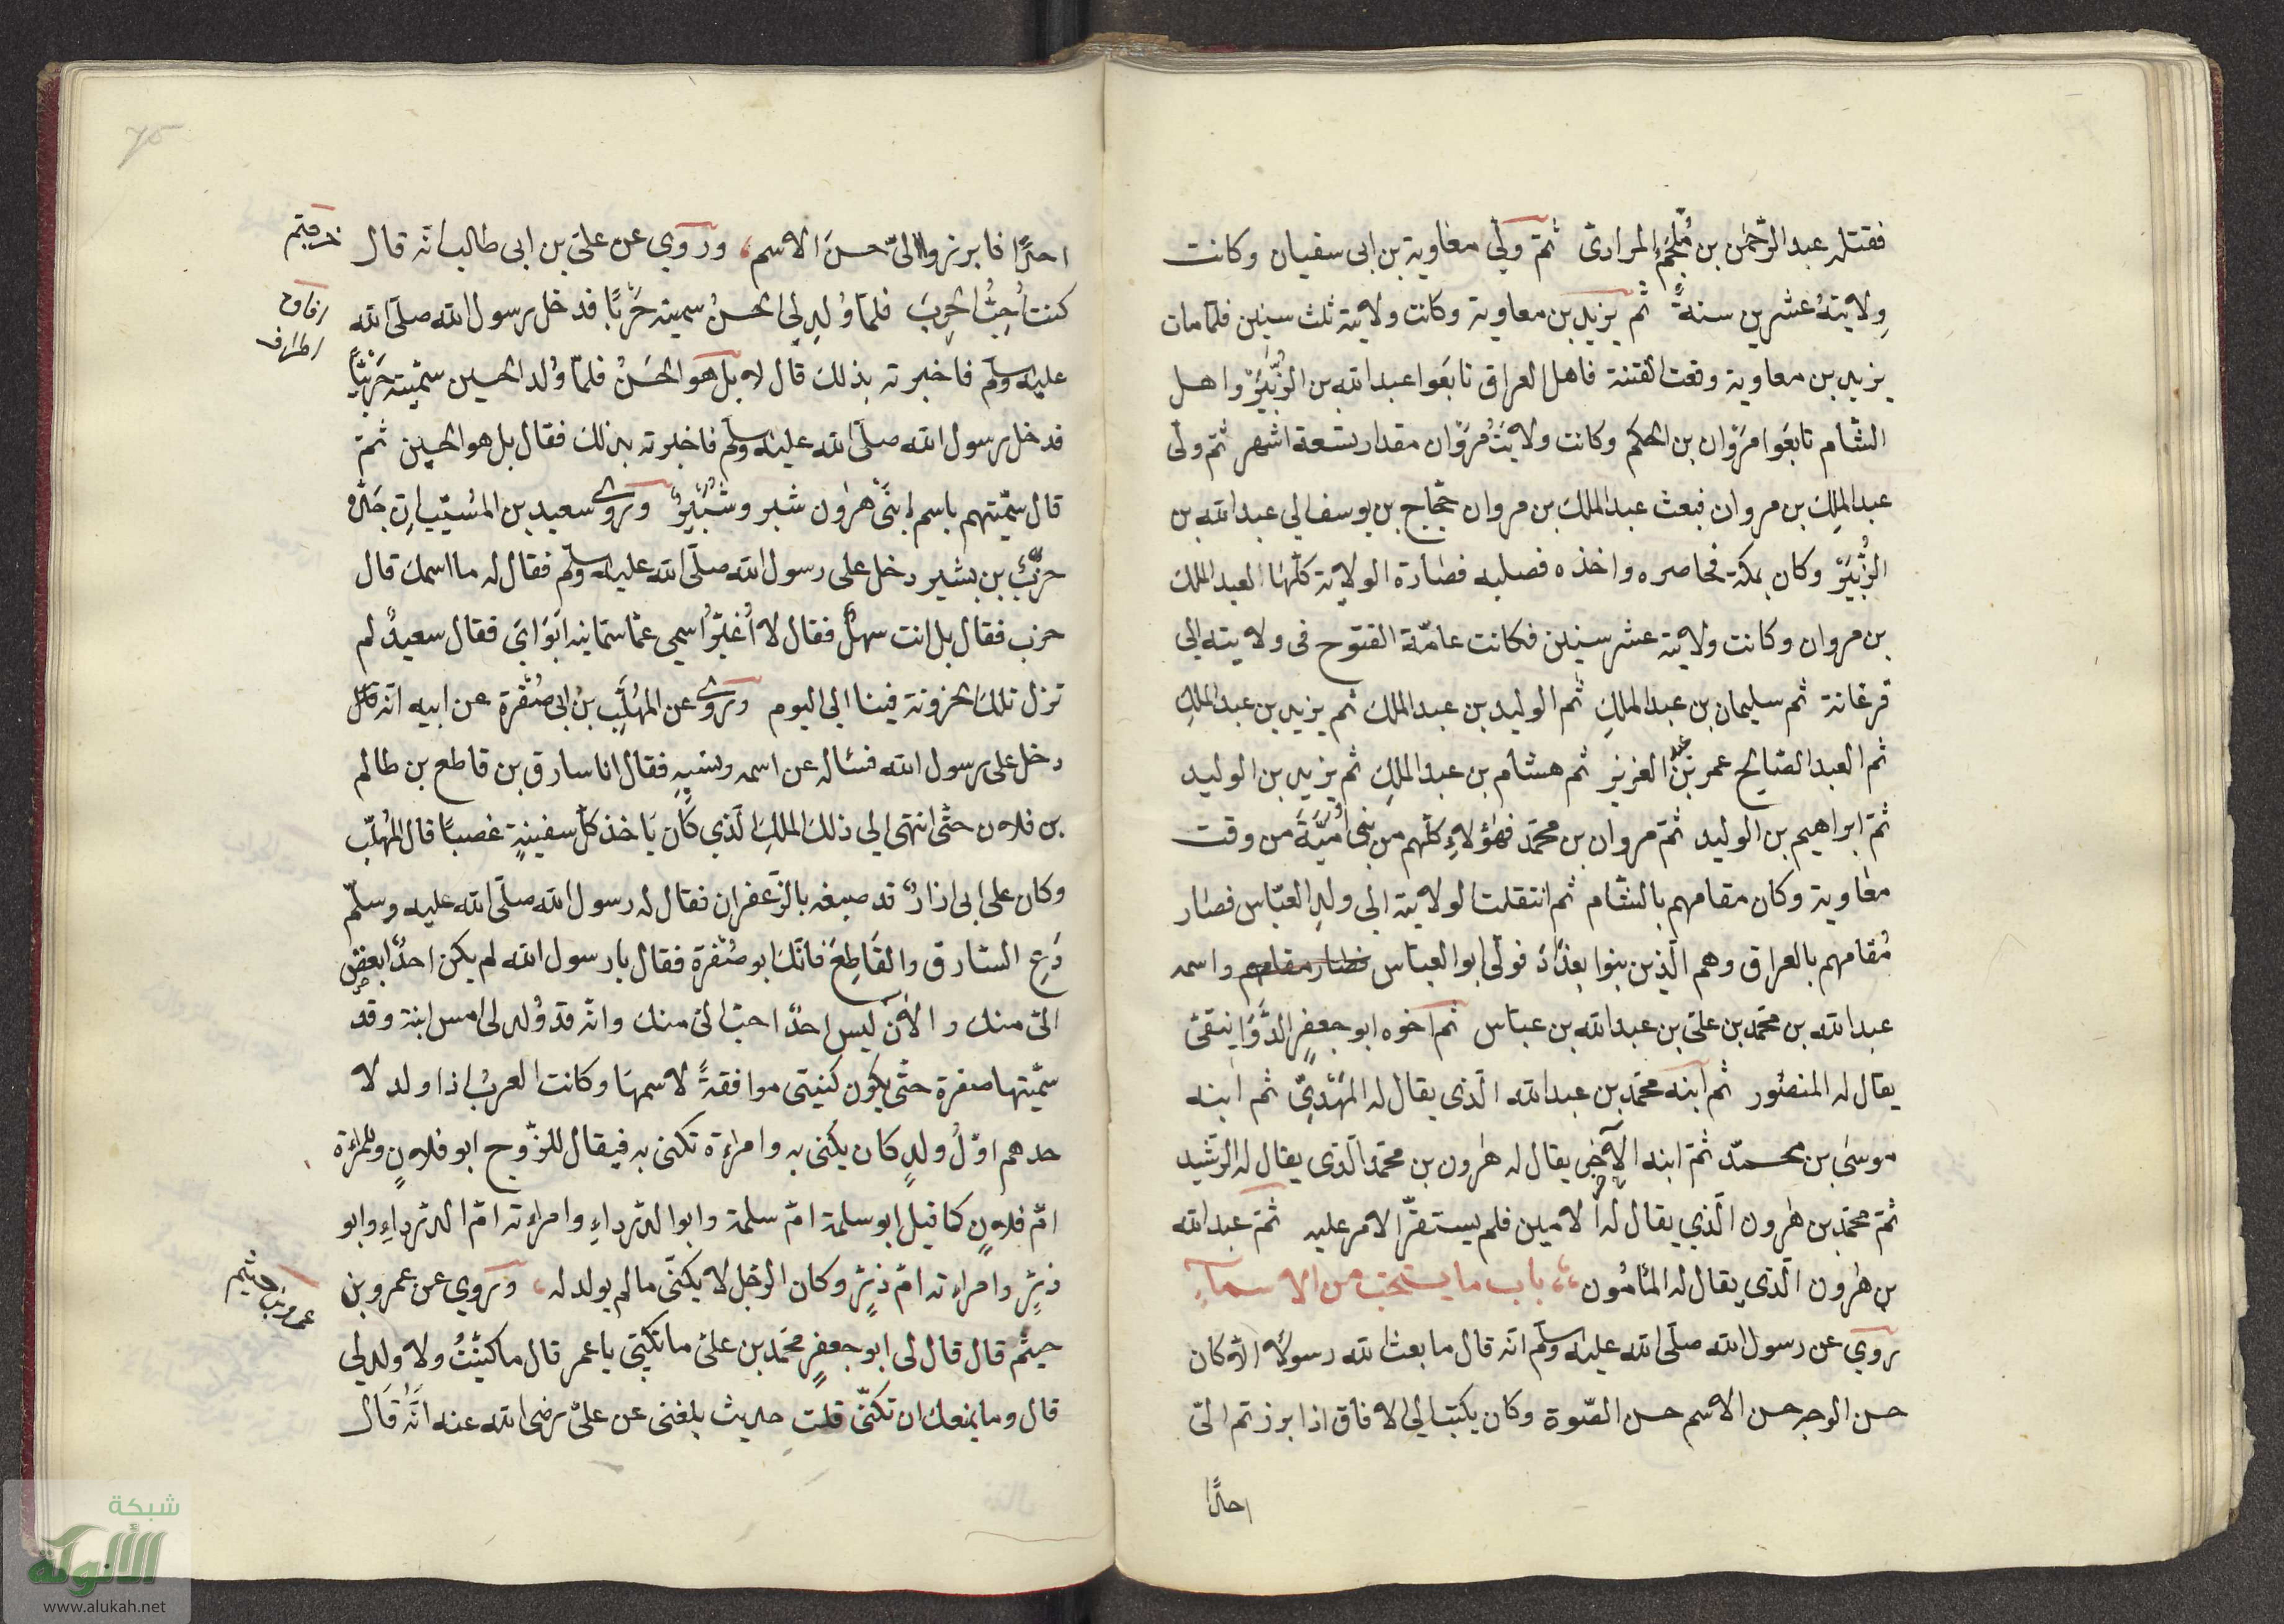 فقتله عبد الرّحمن بن مُلْجَمِ المرادىّ ثمّ ولّي معاوية بن ابى سفيان وكانت
وِلايتهُ عشرين سنةً ثم يزيد بن معاوية وكانت ولايته ثلث سنين فلمّا مات
يزيد بن معاوية وقعت الفتنة فاهل العراق تابَعوا عبد الله بن الزُّبَيْر واهل
الشّام تابَعَوا مَرْوان بن الحكم وكانت ولايَتُ مَرْوَان مقدار بتسعة اشهر ثم ولّى
عبد المِلك بن مروان فبعث عبد الملك بن مروان حجّاج بن يوسف الي عبد الله بن
الزُّبَيْر وكان بمكّة فحاصره واخذه فصلبه فصارة الولاية كلّها العبد الملك
بن مروان وكانت ولايته عشر سنين فكانت عامّة الفتوح فى ولايته الي
فرغانة ثم سليمان بن عبد الملكِ ثم الوليد بن عبد الملك ثم يزيد بن عبد الملكِ
ثم العبد الصّالح عمر بن عبد العزيز ثم هشام بن عبد الملكِ ثم يزيد بن الوليد
ثمّ ابراهيم بن الوليد ثمّ مروان بن محمّد فهٰؤلاءِ كلّهم من بنى اُمَيَّةَ من وقت
معاوية وكان مقامهم بالشّام ثم انتقلت الولاية الي ولدِ العبّاس فصار
مُقامهم بالعراق وهم الّذين بنوا بغدَادَ فولّى ابو العبّاس فصار مقامهم واسمه
عبد الله بن محمّد بن علىّ بن عبد الله بن عباس ثم اخوه ابو جعفرٍ الدَّوَانيقىّ
يقال له المنصُور ثم ابنه محمّد بن عبد الله الّذى يقال له المَهْدِىّ ثم ابنه
موسىٰ بن محمّد ثمّ ابنه الآخر يقال له هٰرون بن محمّد الّذى يقال له الرّشيد
ثمّ محمّد بن هٰرون الّذي يقال لهُ الامين فلم يستقرّ الامر عليه ثمّ عبد الله
بن هٰرون الّذى يقال له المأمُون باب ما يستحبّ من الاسماۤءِ
روي عن رسول الله صلّى الله عليه وسلّم انّه قال ما بعث الله رسولًا الّا كان
حسن الوجه حسن الاسم حسن الصّوة وكان يكتب الي الافاق اذا برزتم الىّ
احدًا
احدًا فابرزوا الىّ حسنَ الاسم، وروي عن علىّ بن ابى طالب انّه قال
كنت اُحِبُّ الحربَ فلمّا وُلدِ لى الحسنُ سميته حَرْبًا فدخل رسول الله صلّى الله
عليه وسلّم فاخبرته بذلك قال لا بل هو الحسَنُ فلمّا وُلد الحسين سمّيته حَرْبًا
فدخل رسول الله صلّى الله عليه وسلّم فاخبرته بذلك فقال بل هو الحسين ثمّ
قال سمّيتهم باسم ابنَىْ هٰرون شبر وشُبَيْرٌ وروى سعيد بن المسُيّب انّ جَدّه
حزنُ بن بشير دخل على رسول الله صلّى الله عليه وسلّم فقال له ما اسمك قال
حزن فقال بل انت سهلٌ فقال لا اُغيّرُ اسمي عمّا سمّانيه ابَوَايَ فقال سعيدٌ لم
تزل تلك الحزونة فينا الي اليوم وروى عن المهُلّب بن ابى صُفْرة عن ابيه انّه قال
دخل على رسول الله فسئاله عن اسمه ونسبهِ فقال انا سارق بن قاطع بن ظالم
بن فلان حتّى انتهى الي ذلك الملكِ الّذي كَان يَاخذ كلّ سفينةٍ غصبًا قال المُهلّب
وكان على ابى ازارٌ قد صبغه بالزّعفران فقال له رسول الله صلّى الله عليه وسلّم
دَعِ السّارق والقَاطِعَ فانّك ابو صُفْرة فقال يا رسول الله لم يكن احدٌ ابغض
الىّ منك والاٰنَ ليس احدٌ احبّ الىّ منك وانّه قد وُلد لى امس ابنة وقد
سمّيتها صفرة حتّى يكون كنيتى موافقةً لاسمها وكانت العربُ اذا ولد لا
حدهم اوّلُ ولدٍ كان يكنى به وامراءة تكنى به فيقال للزّوج ابو فلانٍ وللمراءة
امّ فلانٍ كما قيل ابو سلمة امّ سلمة وابوا الدّرداءِ وامراءته امّ الدّرداءِ وابو
ذرّ وامراءته امّ ذرّ وكان الرّجل لا يكنّى ما لم يولد له، وروي عن عمرو بن
حيثم قال قال لى ابو جعفرٍ محمّد بن علىّ ما تكنّى يا عمر قال ما كنّيتُ ولا ولد لي
قال وما يمنعك ان تكنّى قلت حديث بلغنى عن علىّ رضى الله عنه انّهُ قَال
افاق
اطراف
عمرو بن حيثم
75
شبكة
الألوكة
www.alukah.net